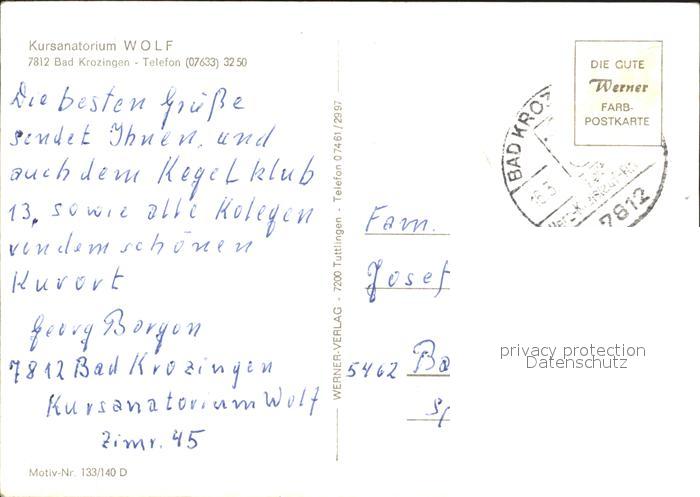 Kursanatorium WOLF
7812 Bad Krozingen - Telefon (07633) 3250
Die besten Grüße
sendet Ihnen, und
auch dem Kegelklub
13, sowie alle Kolegen
von dem schönen
Kurort
Georg Borgon
7812 Bad Krozingen
Kursanatorium Wolf
Zimr. 45
Motiv-Nr. 133/140 D
WERNER-VERLAG - 7200 Tuttlingen - Telefon 07461/2997
DIE GUTE
Werner
FARB-
POSTKARTE
BAD KROZ
7812
Fam.
Josef
5462 Ba
privacy protection
Datenschutz